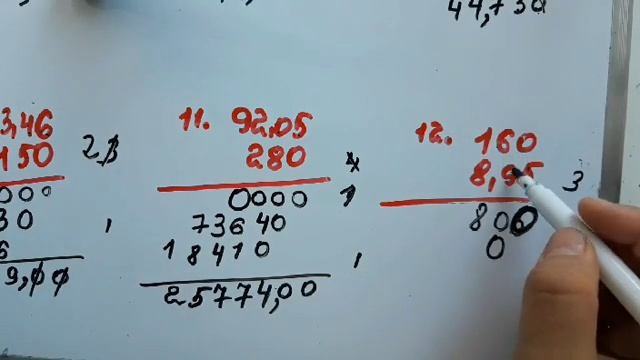 44,730
3,46
150
2
000
30
6
9,00
11. 92,05
280
0000
73640
18410
25774,00
12. 160
8,95
3
800
0